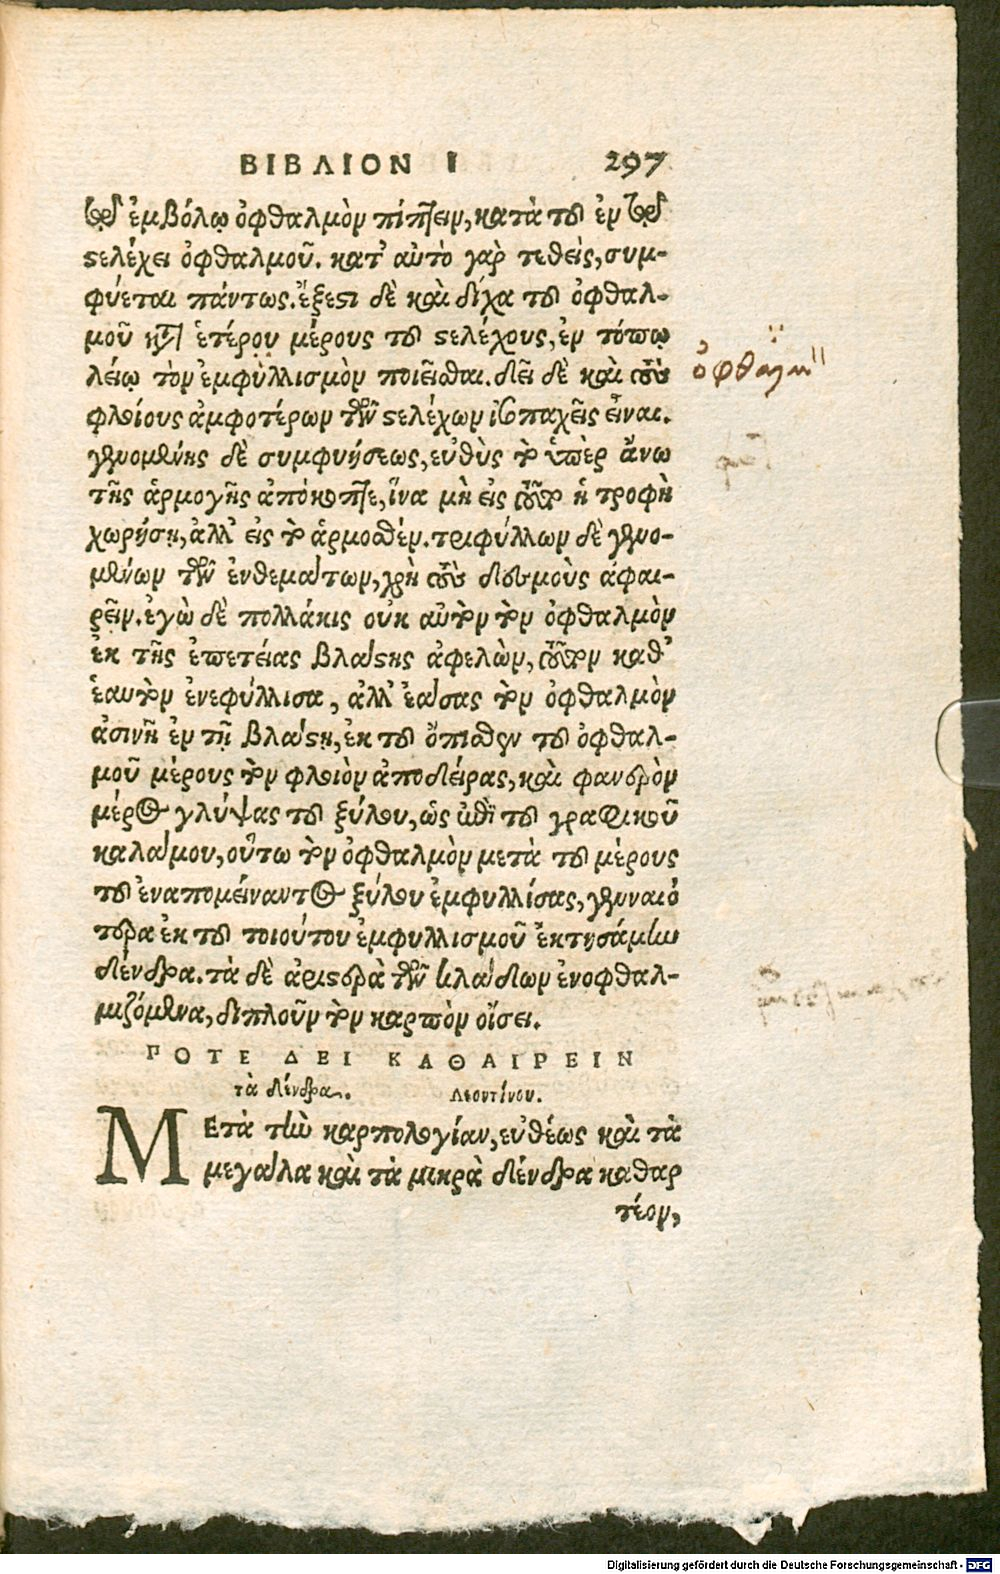 ΒΙΒΛΙΟΝ Ι 297
τῷ ἐμβόλῳ ὀφθαλμὸν πίπτειν, κατὰ τοῦ ἐν τῷ
στελέχει ὀφθαλμοῦ. κατ' αὐτὸ γὰρ τεθεὶς, συμ-
φύεται πάντως. ἔξεστι δὲ καὶ δίχα τοῦ ὀφθαλ-
μοῦ κατὰ ἑτέρου μέρους τοῦ στελέχους, ἐν τόπῳ
λείῳ τὸν ἐμφυλλισμὸν ποιεῖσθαι. δεῖ δὲ καὶ τοὺς
φλοίους ἀμφοτέρων τῶν στελέχων ἰσοπαχεῖς εἶναι.
γενομένης δὲ συμφυήσεως, εὐθὺς τὸ ὑπὲρ ἄνω
τῆς ἁρμογῆς ἀπόκοπτε, ἵνα μὴ εἰς τοῦτο ἡ τροφὴ
χωρήσῃ, ἀλλ' εἰς τὸ ἁρμοσθέν. τριφύλλων δὲ γενο-
μένων τῶν ἐνθεμάτων, χρὴ τοὺς δεσμοὺς ἀφαι-
ρεῖν. ἐγὼ δὲ πολλάκις οὐκ αὐτὸν τὸν ὀφθαλμὸν
ἐκ τῆς ἐπετείας βλάστης ἀφελὼν, τοῦτον καθ'
ἑαυτὸν ἐνεφύλλισα, ἀλλ' ἐάσας τὸν ὀφθαλμὸν
ἀσινῆ ἐν τῇ βλάστῃ, ἐκ τοῦ ὄπισθεν τοῦ ὀφθαλ-
μοῦ μέρους τὸν φλοιὸν ἀποδείρας, καὶ φανερὸν
μέρος γλύψας τοῦ ξύλου, ὡς ἐπὶ τοῦ γραφικοῦ
καλάμου, οὕτω τὸν ὀφθαλμὸν μετὰ τοῦ μέρους
τοῦ ἐναπομείναντος ξύλου ἐμφυλλίσας, γενναιό
τερα ἐκ τοῦ τοιούτου ἐμφυλλισμοῦ ἐκτησάμην
δένδρα. τὰ δὲ ἀριστερὰ τῶν κλάδων ἐνοφθαλ-
μιζόμενα, διπλοῦν τὸν καρπὸν οἴσει.
ΠΟΤΕ ΔΕΙ ΚΑΘΑΙΡΕΙΝ
τὰ δένδρα. Λεοντίνου.
ΜΕτὰ τὴν καρπολογίαν, εὐθέως καὶ τὰ
μεγάλα καὶ τὰ μικρὰ δένδρα καθαρ
τέον,
Digitalisierung gefördert durch die Deutsche Forschungsgemeinschaft - DFG